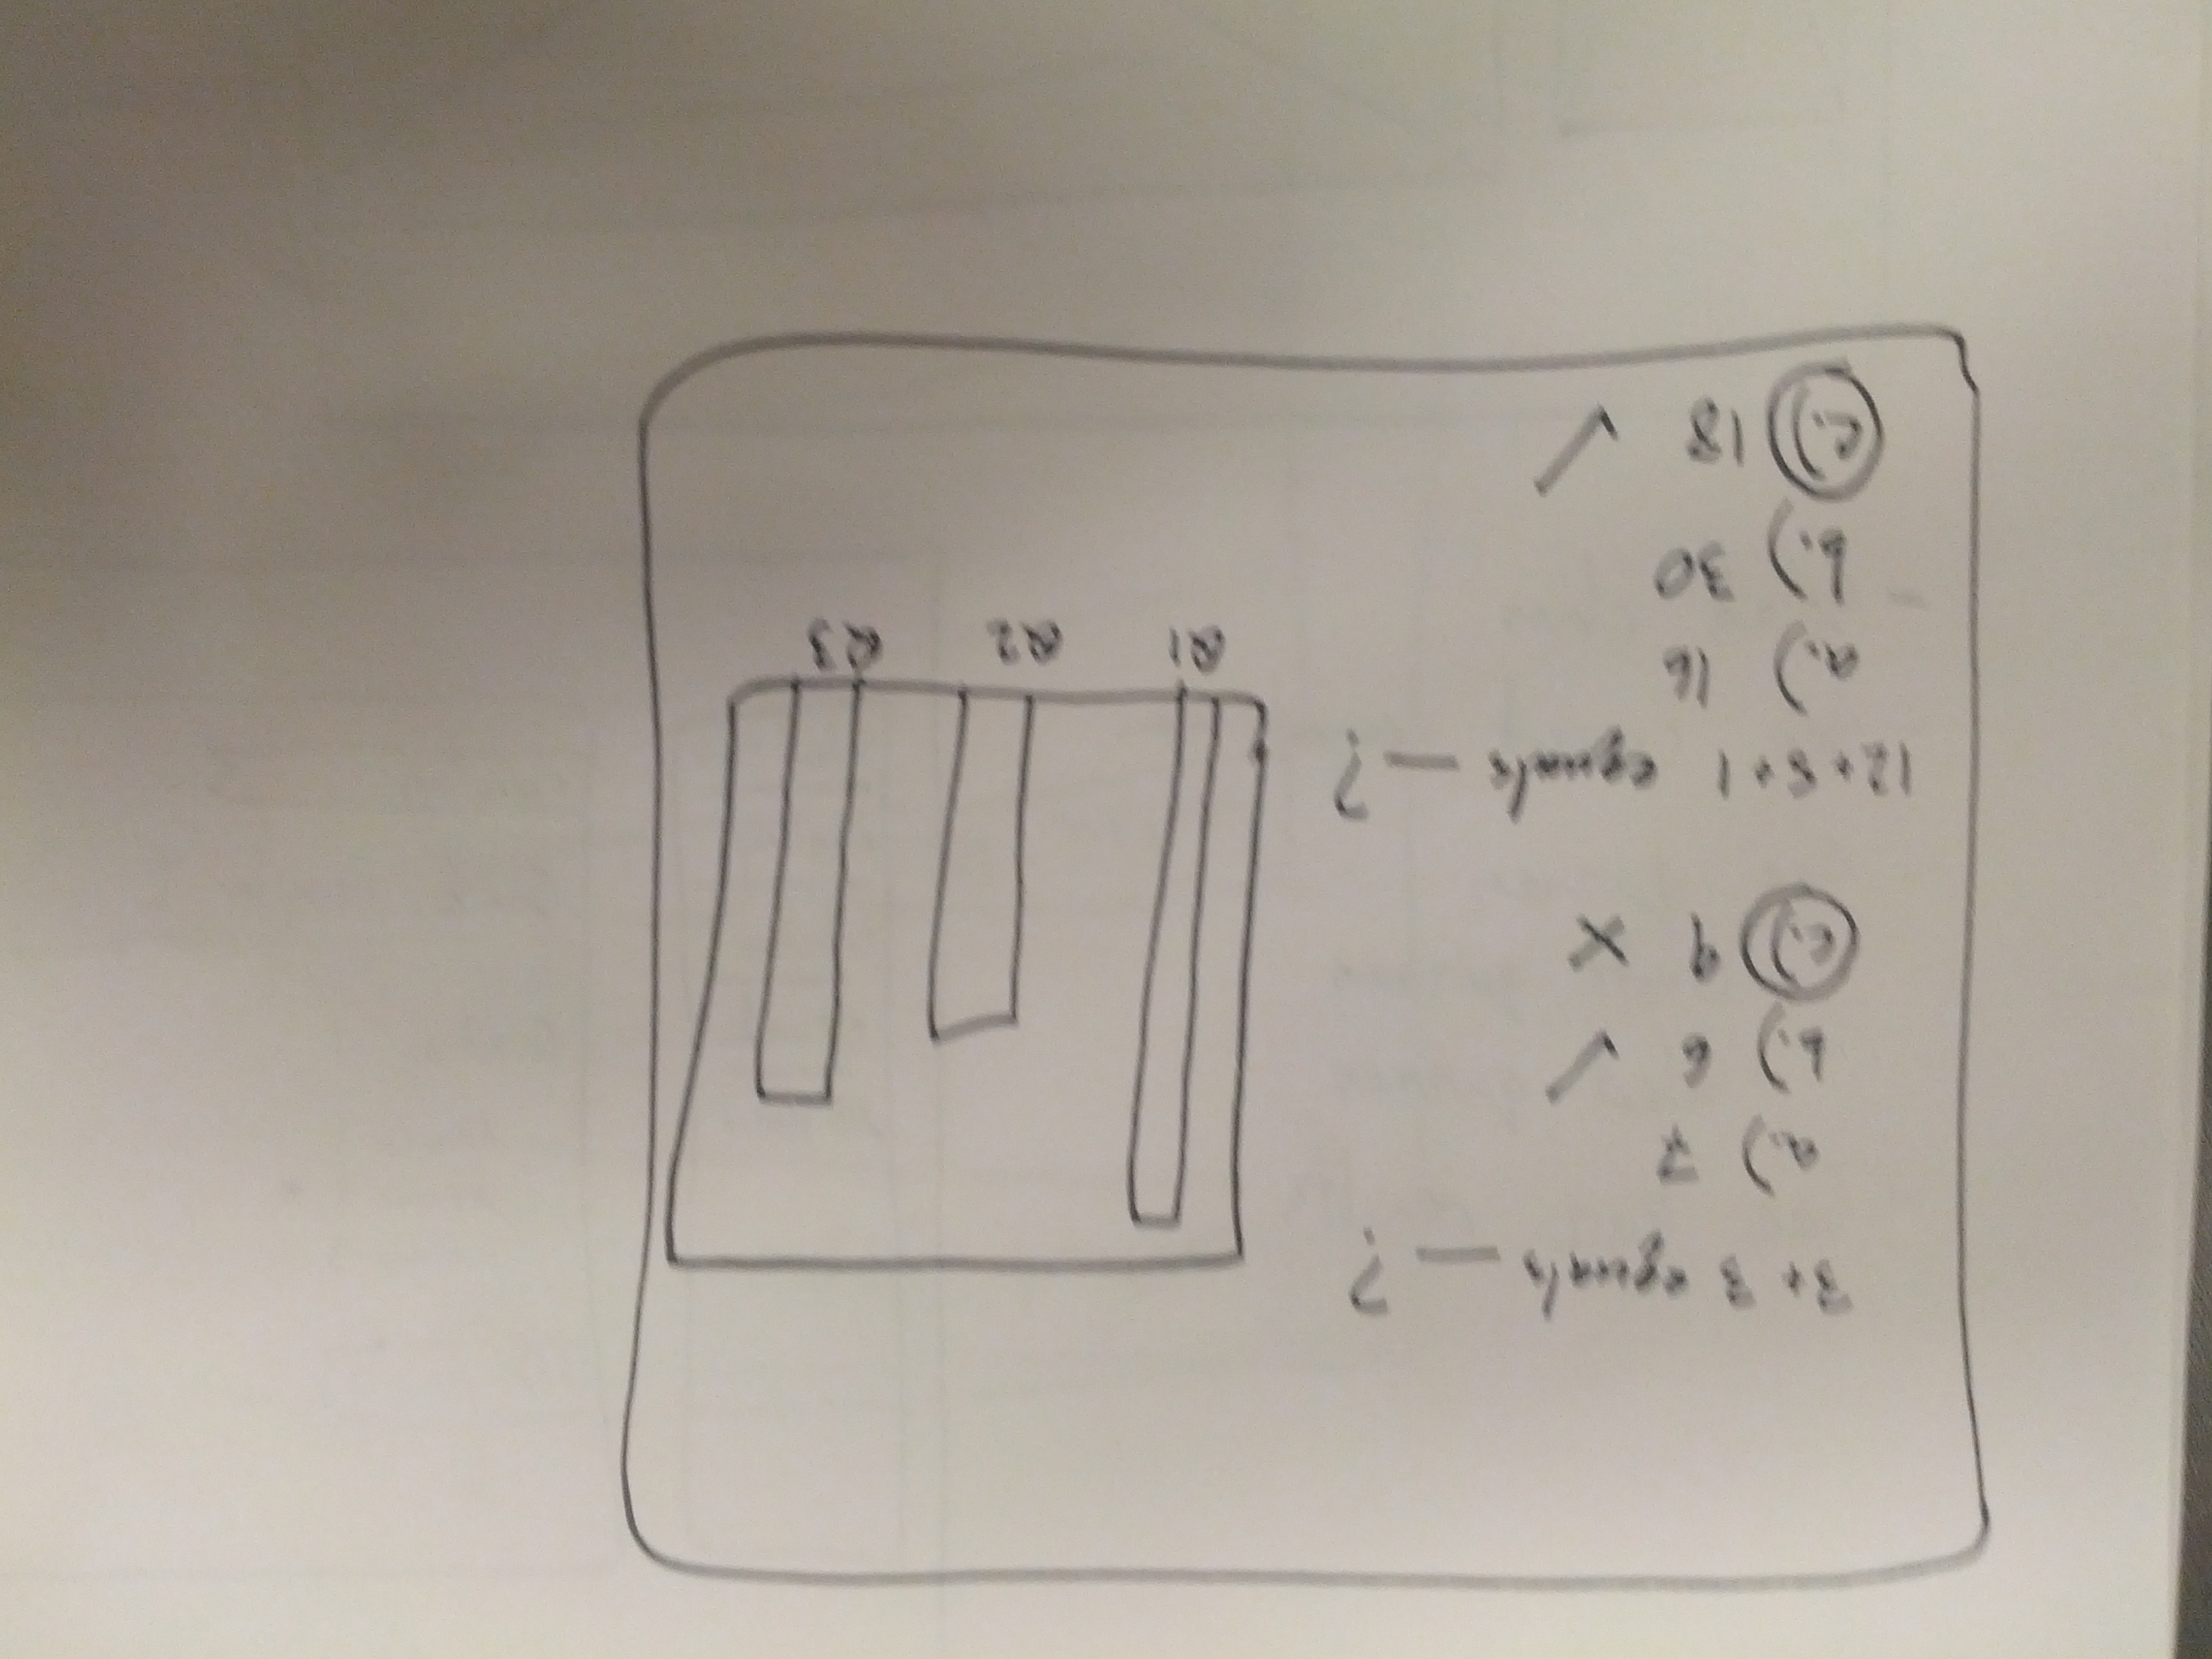 3+3 equals — ?
a.) 7
b.) 6 ✓
c.) 9 X
12+5+1 equals — ?
a.) 16
b.) 30
c.) 18 ✓
Q1 Q2 Q3